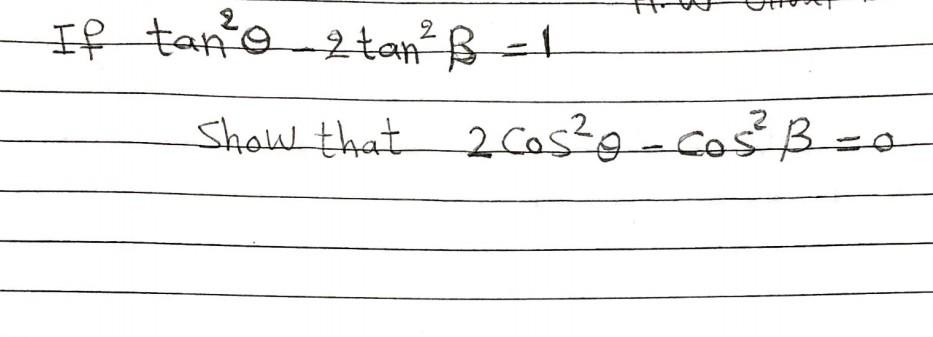 If tan²θ - 2 tan² β = 1
Show that 2 Cos²θ - Cos² β = 0